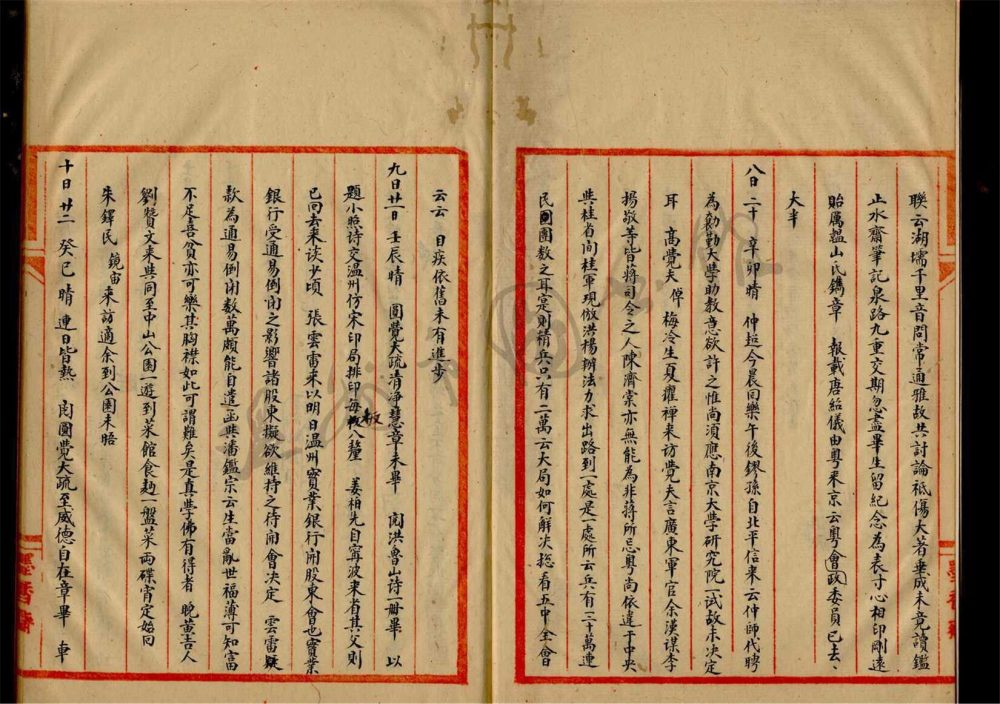 聯云湖壖千里音問常通雅故共討論祗傷大著垂成未竟讀鑑
止水齋筆記泉路九重交期忽盡畢生留紀念為表寸心相印剛遠
貽厲韞山氏鐫章　報載唐紹儀由粵来京云粵會政委員已去、
大半
八日二十　辛卯晴　仲超今晨回樂午後鏐孫自北平信来云仲師代聘
為勷勤大學助教意欲許之惟尚須應南京大學研究院一試故未決定
耳　高覺夫倬梅冷生夏耀禪来訪覺夫言廣東軍官余漢謀李
揚敬等皆蔣司令之人陳濟棠亦無能為非蔣所忌粵尚依違于中央
與桂省间桂軍現倣洪楊辦法力求出路到一處是一處所云兵有二十萬連
民團團数之耳寔則精兵只有二萬云大局如何解决総看五中全會
云云　日疾依舊未有進步
九日廿一日　壬辰晴　圓覺大疏清淨慧章未畢　閱洪魯山诗一册畢　以
題小照詩交温州仿宋印局排印每板八釐　姜柏先自寧波来省其父则
已向去来谈少頃　張雲雷来以明日温州實業銀行開股東會也實業
銀行受通易倒闭之影響諸股東擬欲維持之待開會决定　雲雷疑
款為通易倒闭数萬頗能自遣函與潘鑑宗云生當亂世福薄可知富
不足喜貧亦可樂其胸襟如此可謂難矣是真學佛有得者　晚黄吉人
劉贊文来共同至中山公園一遊到菜館食麪一盤菜兩碟宵定始回
朱鐸民　鏡宙来訪適余到公園未晤
十日廿二　癸巳晴　連日皆熱　閱圓覺大疏至威德自在章畢　車
墨香齋